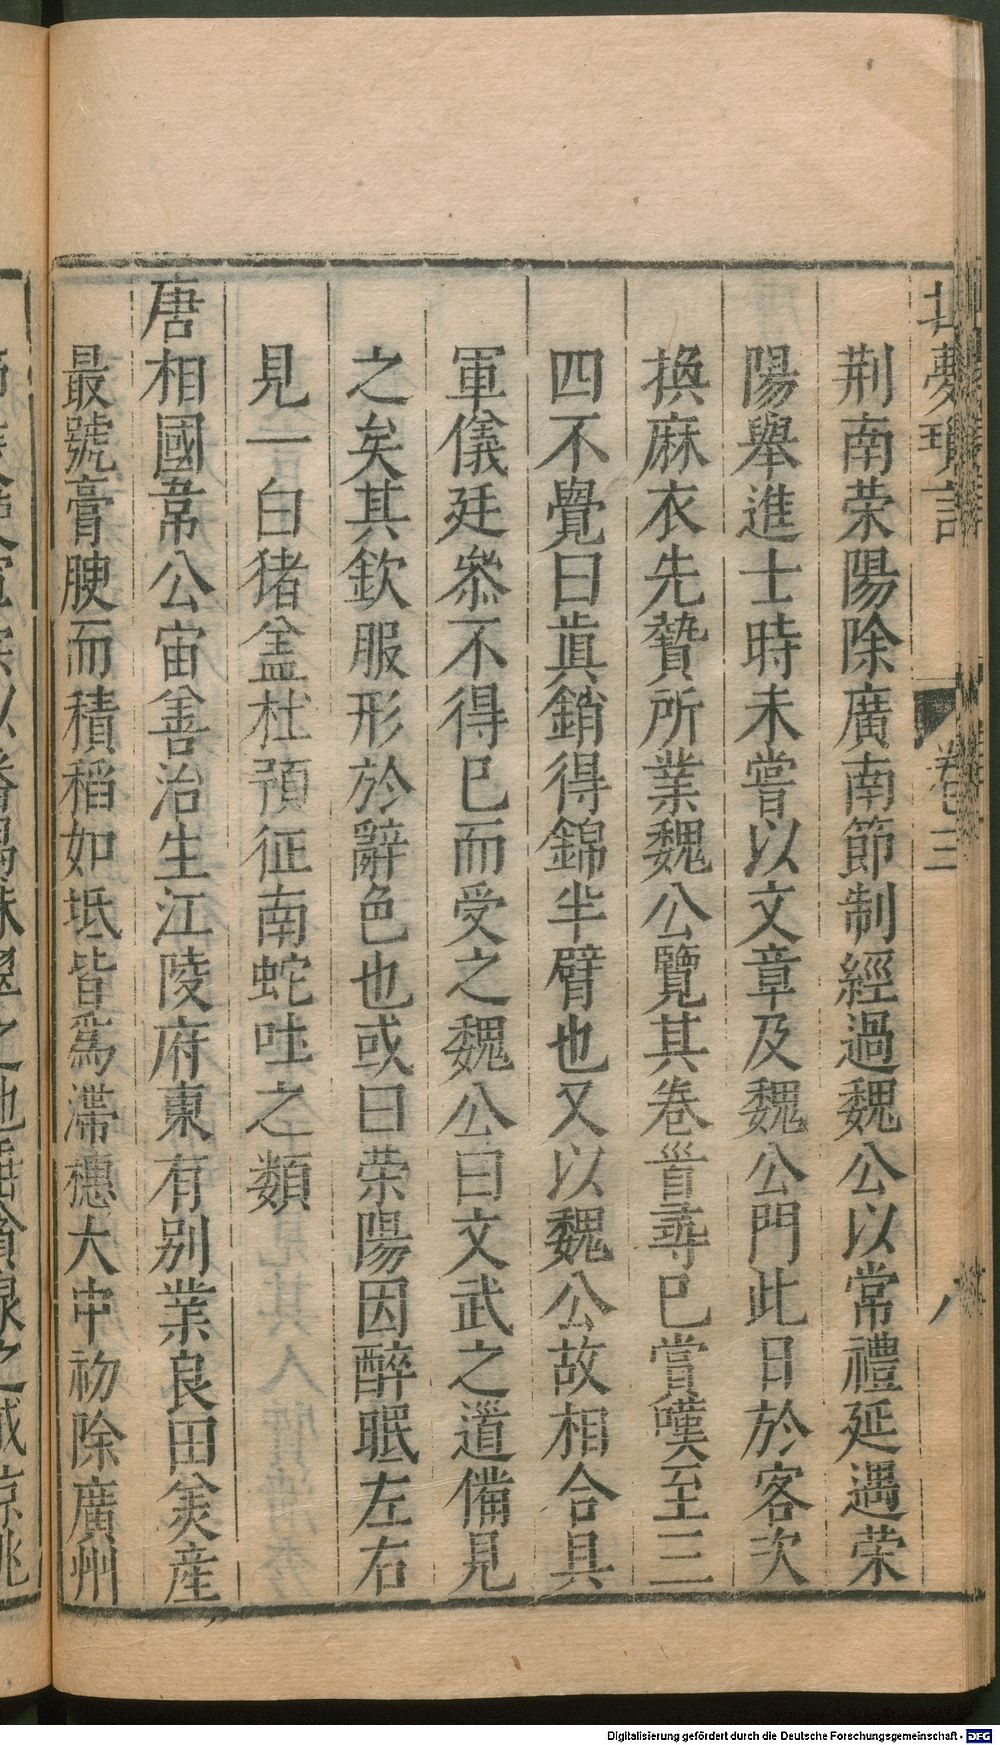 北夢瑣言 卷三 八
荆南荣陽除廣南節制經過魏公以常禮延遇荣
陽舉進士時未嘗以文章及魏公門此日於客次
換麻衣先贄所業魏公覽其卷首尋已賞嘆至三
四不覺曰眞銷得錦半臂也又以魏公故相合具
軍儀廷叅不得已而受之魏公曰文武之道備見
之矣其欽服形於辭色也或曰荣陽因醉眠左右
見一白猪盖杜預征南蛇吐之類
唐相國韋公宙善治生江陵府東有别業良田美産
最號膏腴而積稻如坻皆爲滯穗大中初除廣州
Digitalisierung gefördert durch die Deutsche Forschungsgemeinschaft - DFG